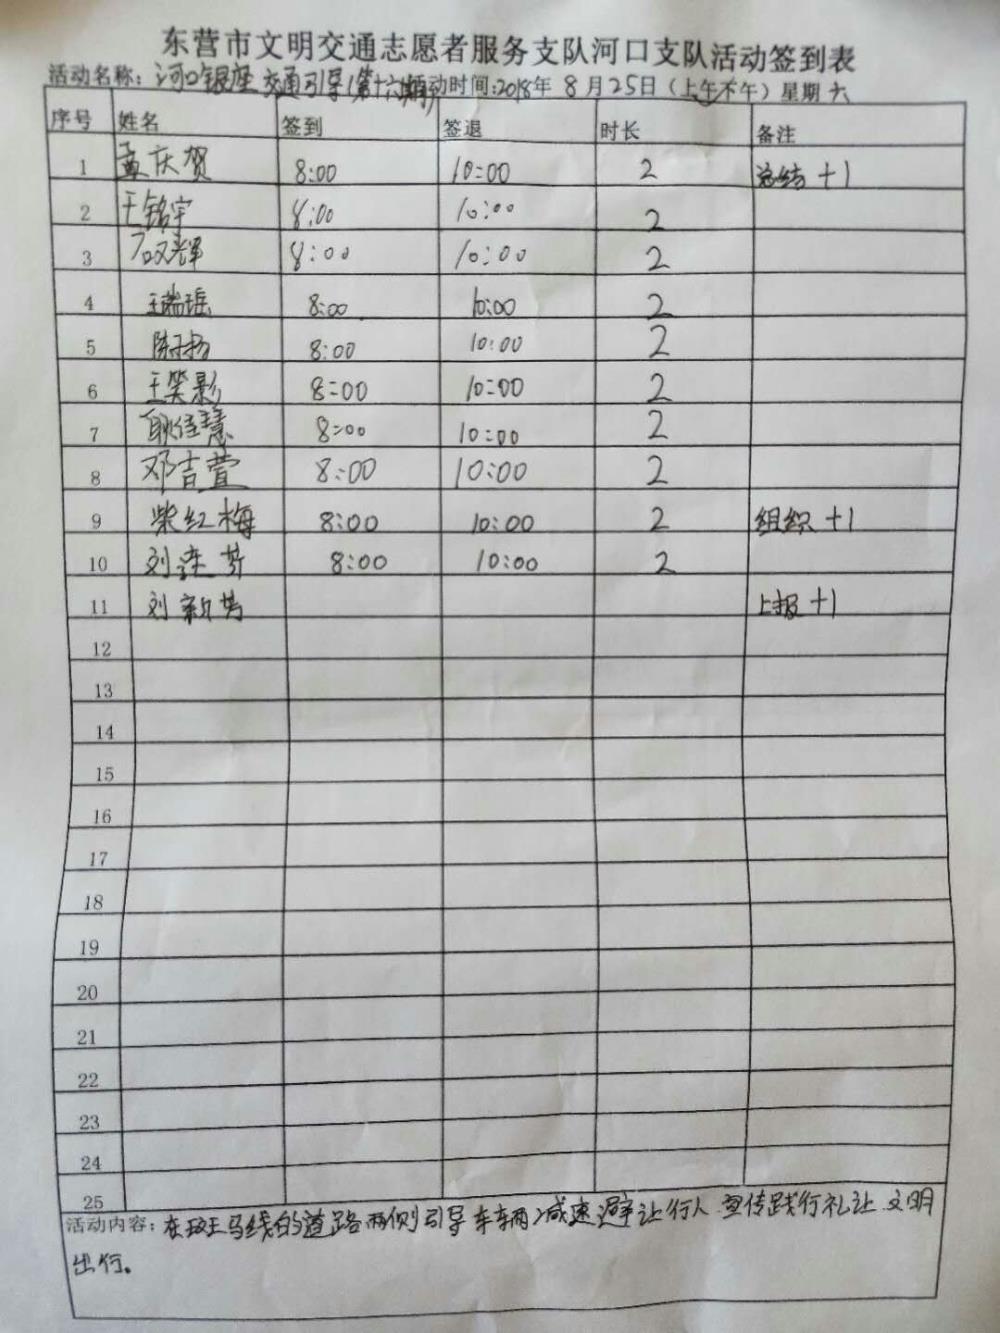 东营市文明交通志愿者服务支队河口支队活动签到表
活动名称：河口银座交通引导(第十六期)活动时间:2018年 8月25日（上午下午）星期六
序号 姓名 签到 签退 时长 备注
1 孟庆贺 8:00 10:00 2 总结 +1
2 王铭宇 8:00 10:00 2
3 8:00 10:00 2
4 王瑞瑶 8:00 10:00 2
5 陈子扬 8:00 10:00 2
6 王笑影 8:00 10:00 2
7 耿佳慧 8:00 10:00 2
8 邓吉萱 8:00 10:00 2
9 柴红梅 8:00 10:00 2 组织 +1
10 刘莲芳 8:00 10:00 2
11 刘新芳 上报 +1
12
13
14
15
16
17
18
19
20
21
22
23
24
25
活动内容：在斑马线的道路两侧引导车辆减速避让行人.宣传践行礼让.文明
出行。